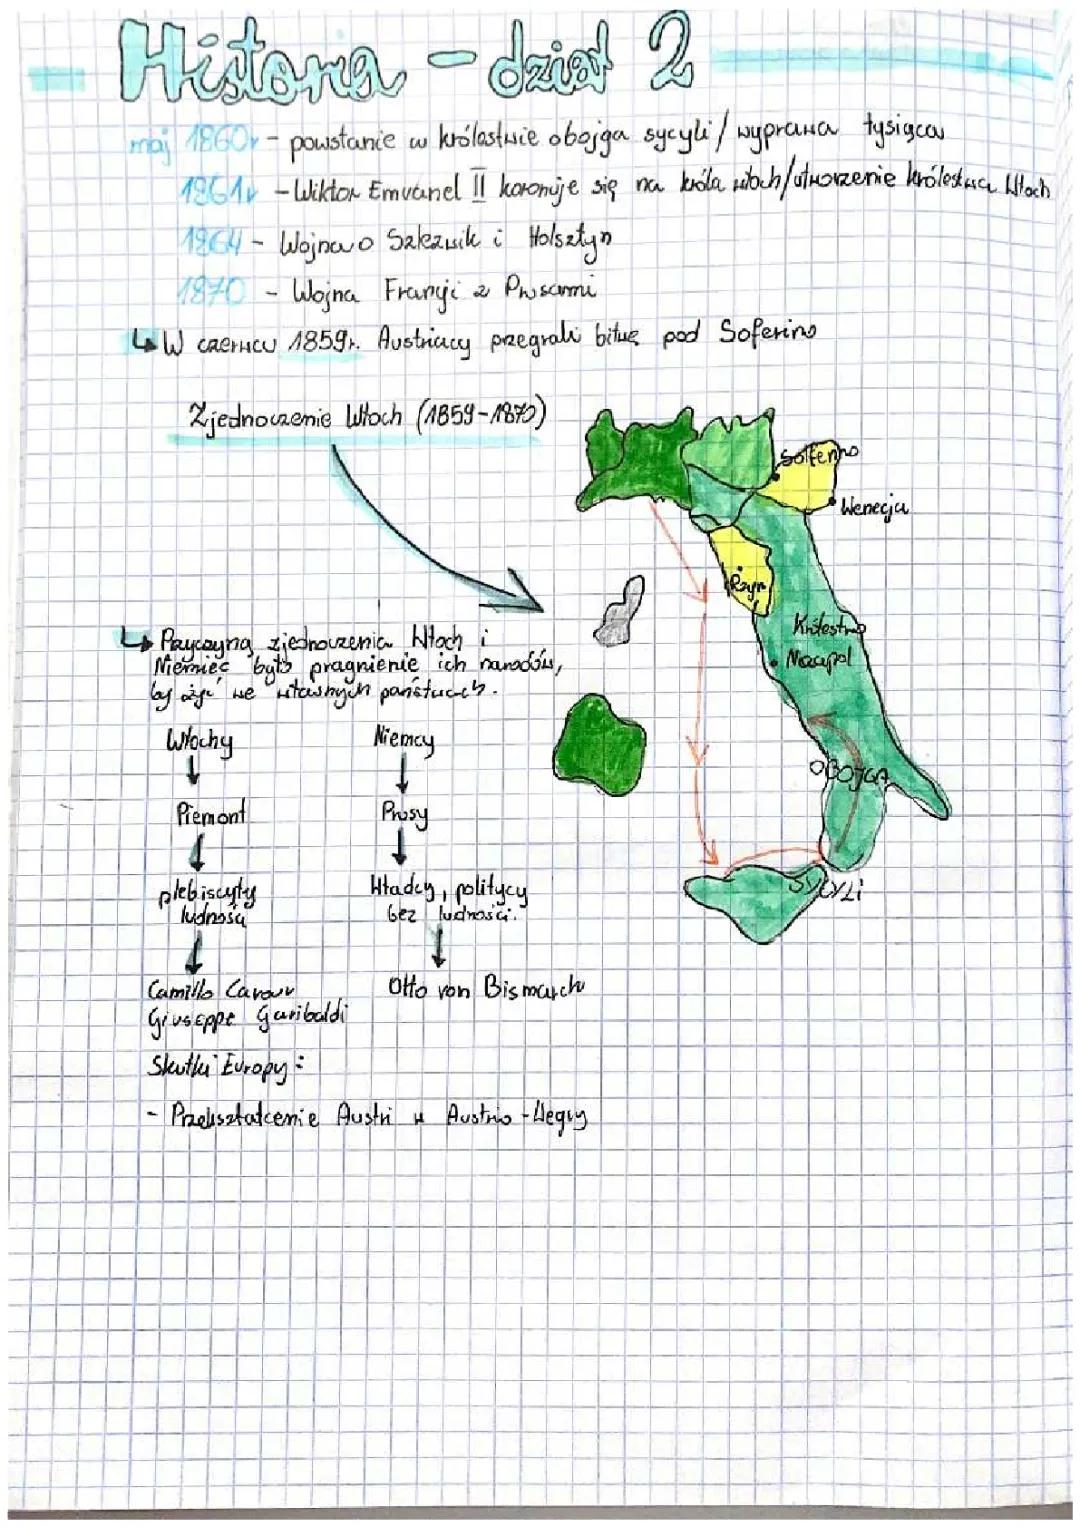 Historia - dział 2
maj 1860r - powstanie w królestwie obojga sycyli/ wyprawa tysiąca
1861r - Wiktor Emvanel II koronuje się na króla włoch/utworzenie królestwa Włoch
1864 - Wojna o Szlezwik i Holsztyn
1870 - Wojna Francji z Prusami
↳ W czerwcu 1859r. Austriacy przegrali bitwę pod Soferino
Zjednoczenie Włoch (1859-1870)
Solferino
Wenecja
Rzym
Królestwo
Neapol
OBOJGA
SYCYLI
↳ Przyczyną zjednoczenia Włoch i
Niemiec było pragnienie ich narodów,
by żyć we własnych państwach.
Włochy Niemcy
Piemont Prusy
plebiscyty Władcy, politycy
ludności bez ludności.
Camillo Cavour Otto von Bismarck
Giuseppe Garibaldi
Skutki Europy:
- Przekształcenie Austri w Austrio-Węgry